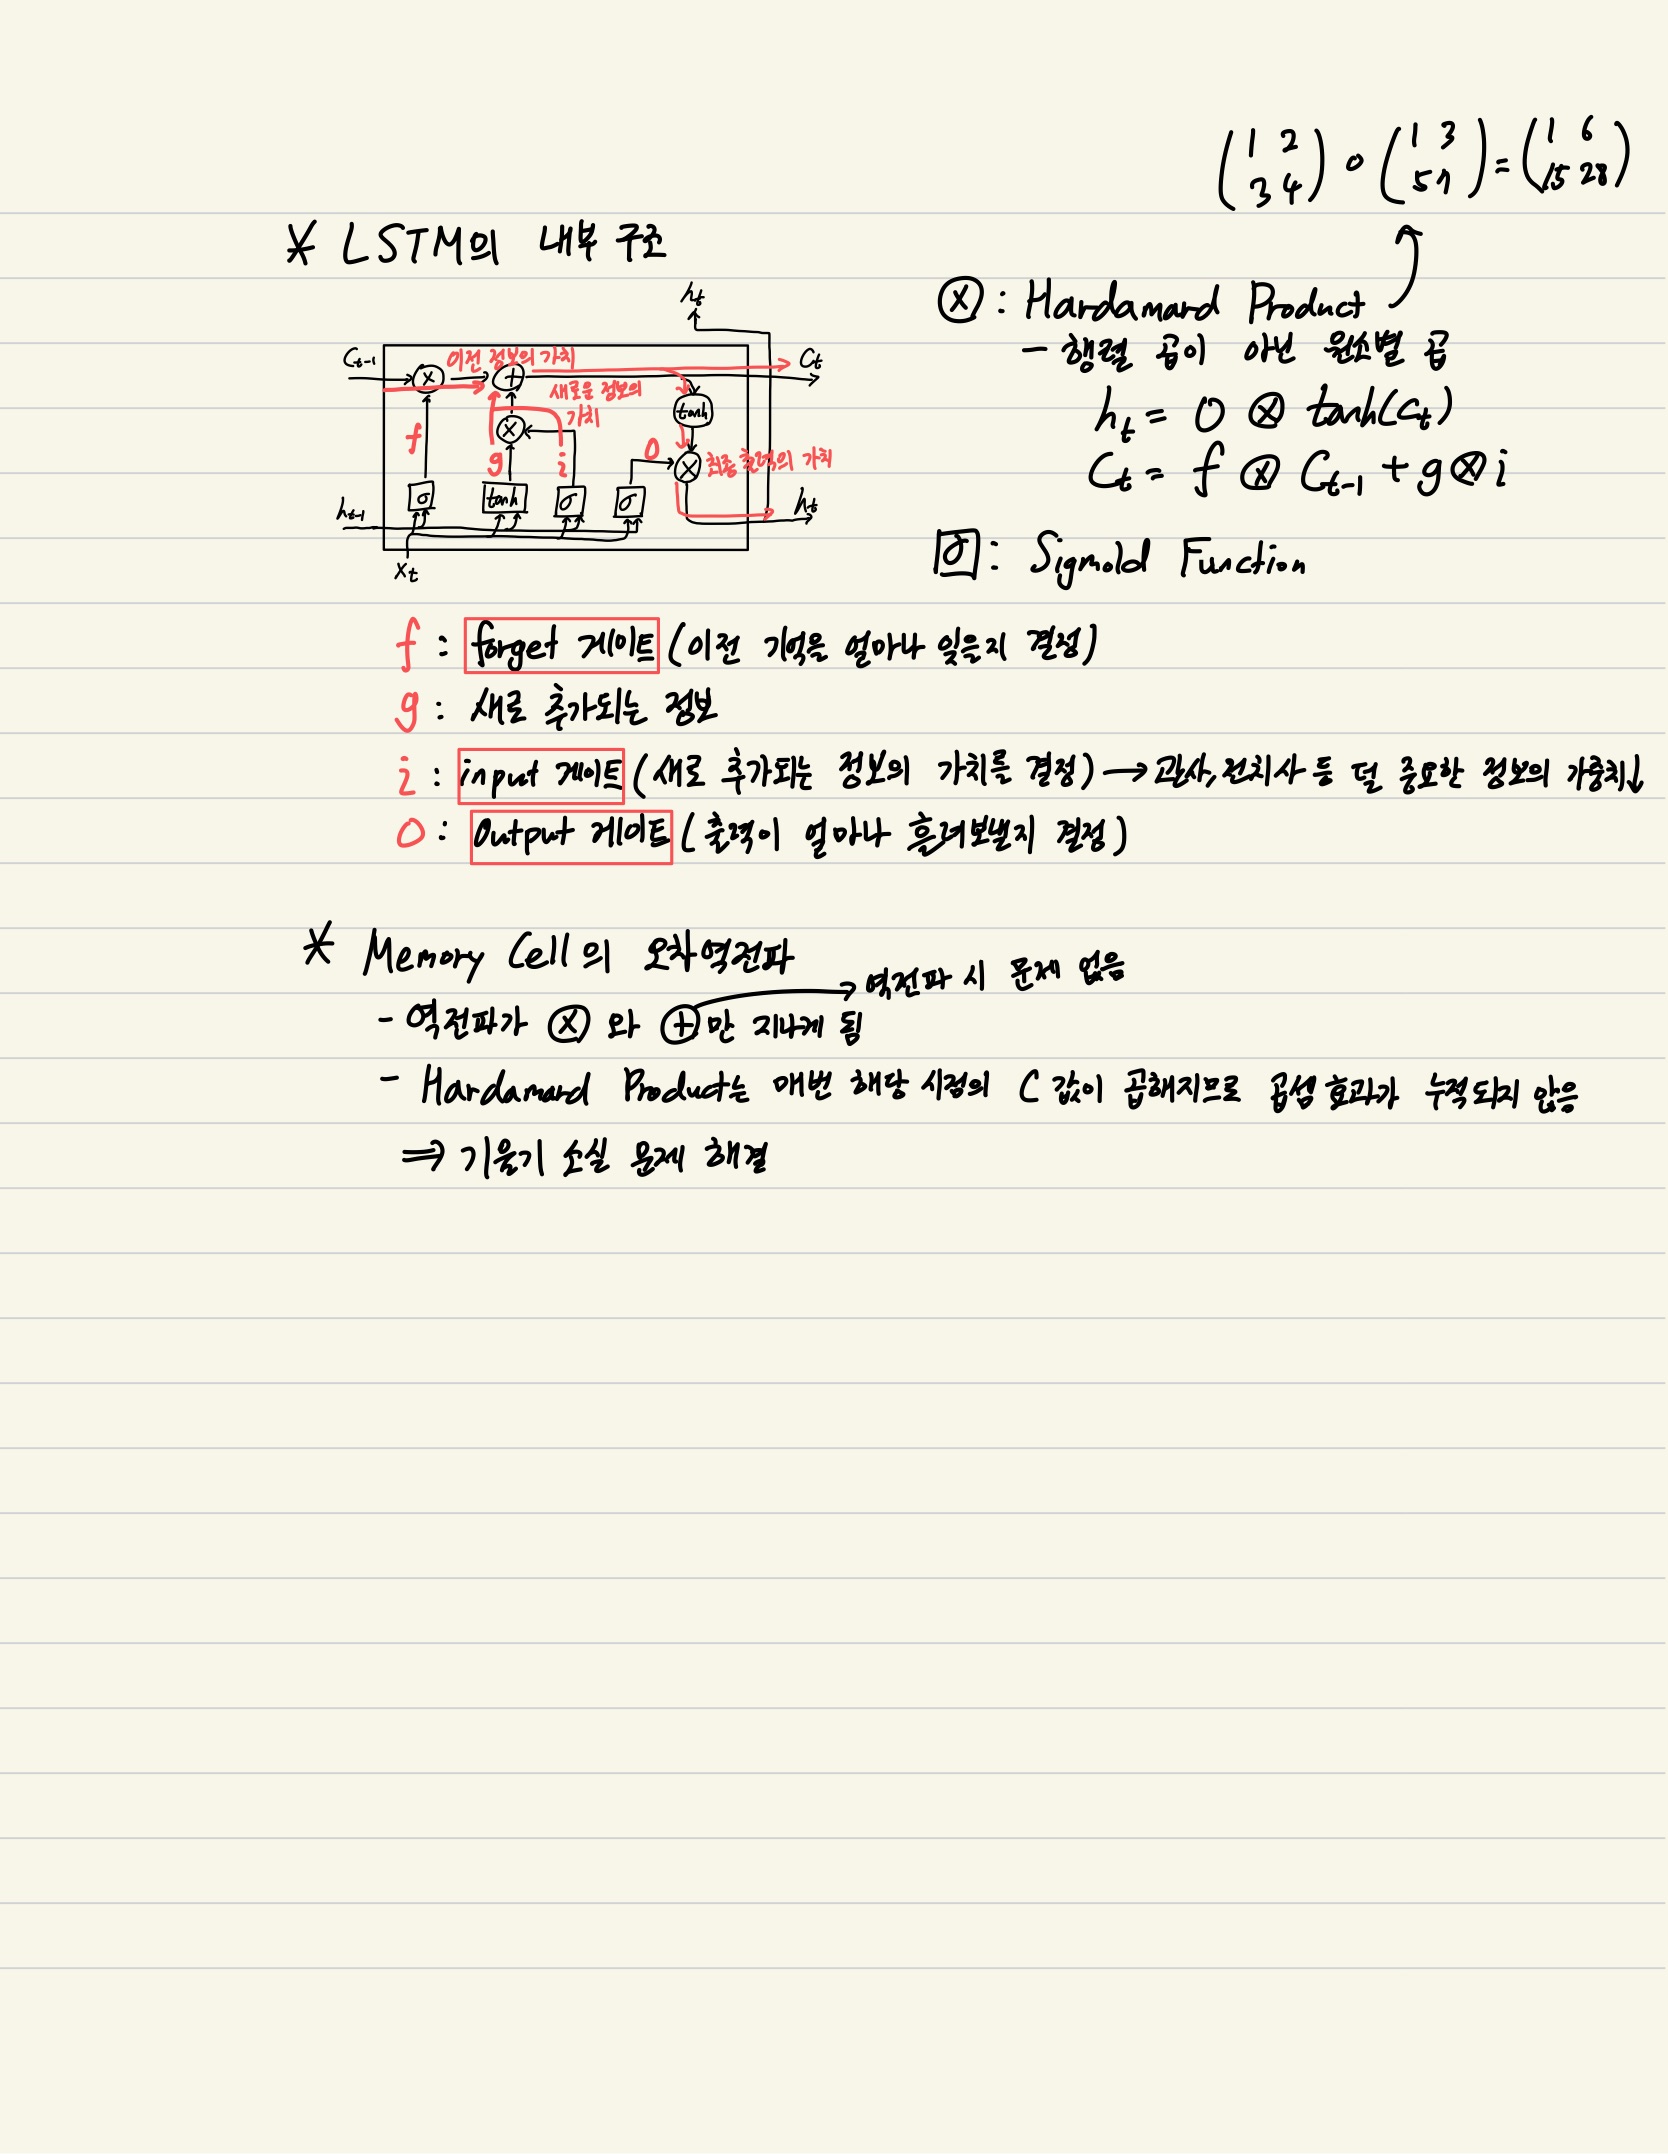 (1 2
3 4) ∘ (1 3
5 7) = (1 6
15 28)
* LSTM의 내부 구조
ⓧ: Hardamard Product
- 행렬 곱이 아닌 원소별 곱
h_t = O ⊗ tanh(C_t)
C_t = f ⊗ C_t-1 + g ⊗ i
σ: Sigmoid Function
h_t
C_t-1 × 이전 정보의 가치 + C_t
새로운 정보의
가치
tanh
f g × i O × 최종 출력의 가치
σ tanh σ σ
h_t-1 h_t
x_t
f: forget 게이트 (이전 기억을 얼마나 잊을지 결정)
g: 새로 추가되는 정보
i: input 게이트 (새로 추가되는 정보의 가치를 결정) → 관사, 전치사 등 덜 중요한 정보의 가중치↓
O: Output 게이트 (출력이 얼마나 흘려보낼지 결정)
* Memory Cell의 오차역전파
→ 역전파 시 문제 없음
- 역전파가 ⓧ 와 ⊕만 지나게 됨
- Hardamard Product는 매번 해당 시점의 C 값이 곱해지므로 곱셈 효과가 누적되지 않음
⇒ 기울기 소실 문제 해결